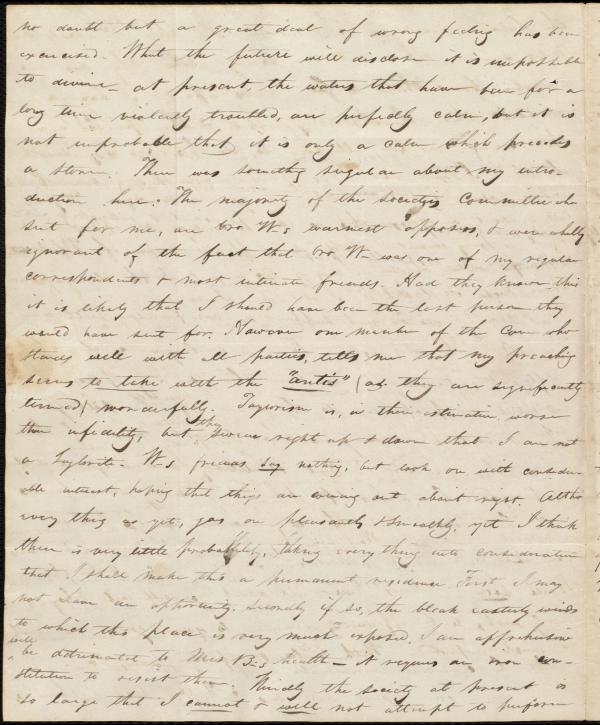 no doubt but a great deal of wrong feeling has been
exercised. What the future will disclose it is impossible
to divine – at present, the waters that have been for a
long time violently troubled, are perfectly calm, but it is
not improbable that it is only a calm which precedes
a storm. There was something singular about my intro-
duction here: The majority of the societys Committee who
sent for me, are bro W–s warmest opposers, & were wholly
ignorant of the fact that bro W– was one of my regular
correspondents & most intimate friends. Had they known this
it is likely that I should have been the last person they
would have sent for. However one member of the Com who
stands well with all parties, tells me that my preaching
seems to take with the "antis" (as they are significantly
termed) wonderfully. Taylorism is, in their estimation, worse
than infidelity, but they swear right up & down that I am not
a Taylorite. W–s friends say nothing, but look on with consider-
able interest, hoping that things are coming out about right. Altho
every thing as yet, goes on pleasantly & smoothly, yet I think
there is very little probability, taking every thing into consideration
that I shall make this a permanent residence. First I may
not have an opportunity. Secondly if so, the bleak easterly winds
to which this place is very much exposed, I am apprehensive
will be detrimental to Mrs B–s health – it requires an iron con-
stitution to resist them. Thirdly the society at present is
so large that I cannot & will not attempt to perform